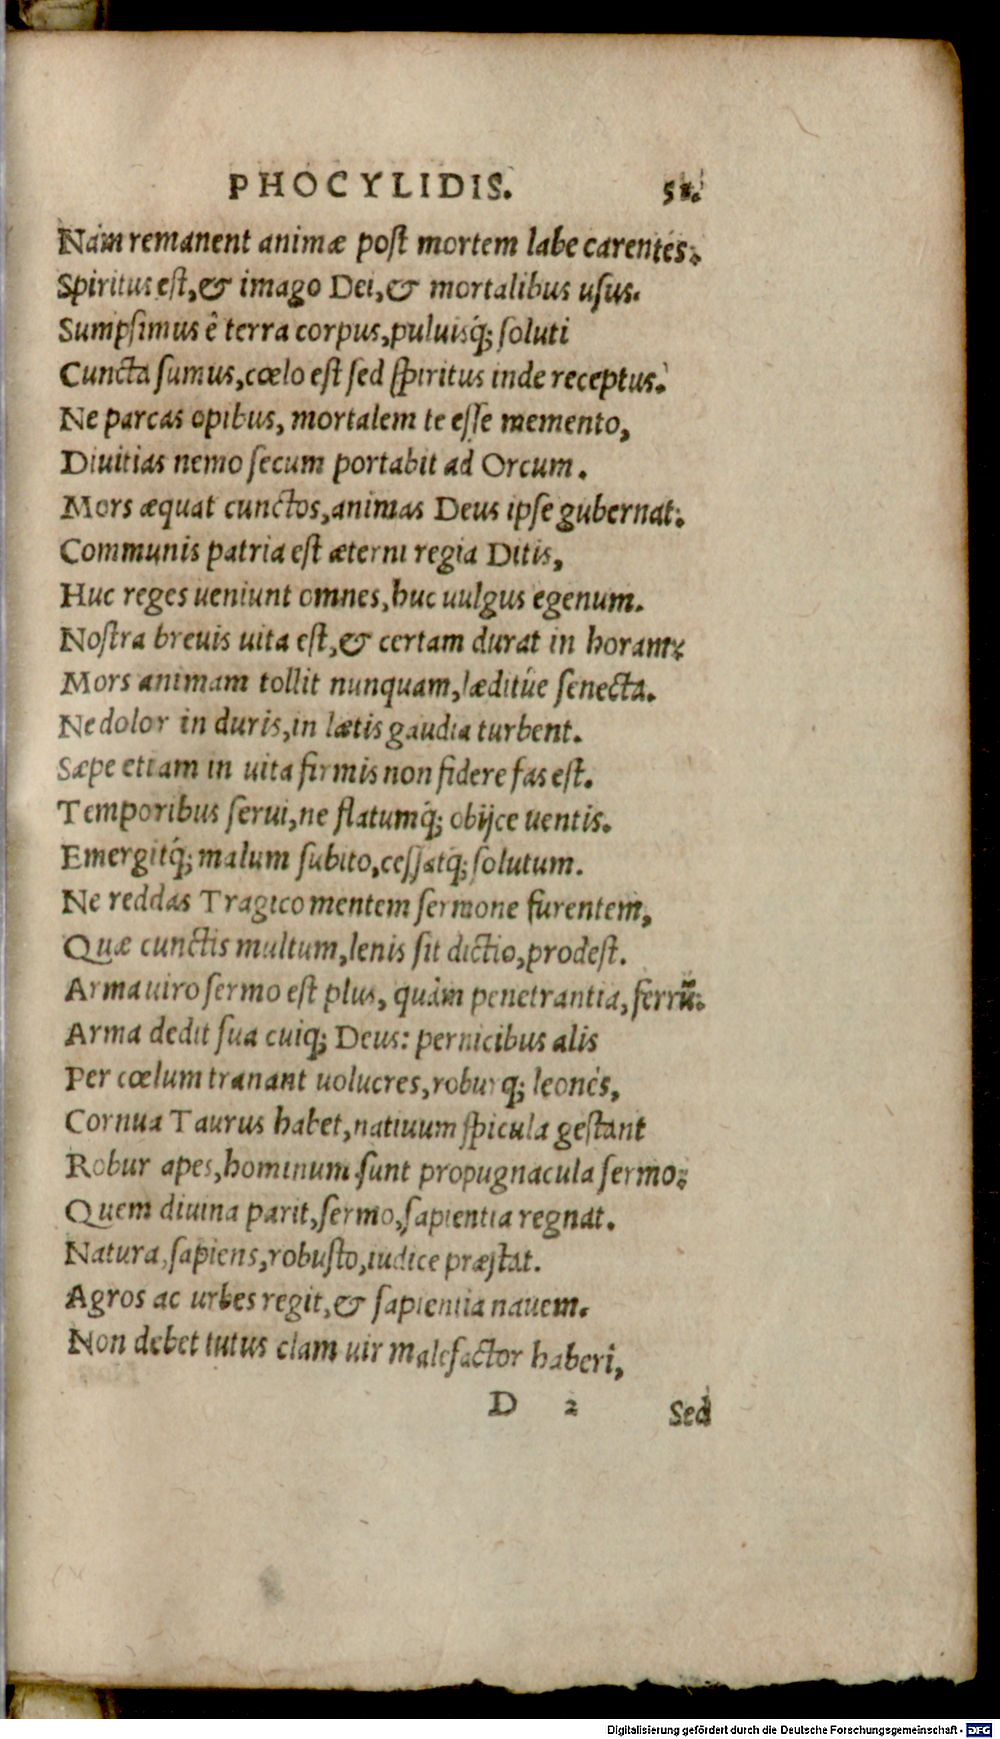 PHOCYLIDIS. 51.
Nam remanent animæ post mortem labe carentes.
Spiritus est, & imago Dei, & mortalibus usus.
Sumpsimus ê terra corpus, puluisq́; soluti
Cuncta sumus, cœlo est sed spiritus inde receptus.
Ne parcas opibus, mortalem te esse memento,
Diuitias nemo secum portabit ad Orcum.
Mors æquat cunctos, animas Deus ipse gubernat:
Communis patria est æterni regia Ditis,
Huc reges ueniunt omnes, huc uulgus egenum.
Nostra breuis uita est, & certam durat in horam:
Mors animam tollit nunquam, læditúe senecta.
Ne dolor in duris, in lætis gaudia turbent.
Sæpe etiam in uita firmis non fidere fas est.
Temporibus serui, ne flatumq́; obijce uentis.
Emergitq́; malum subito, cessatq́; solutum.
Ne reddas Tragico mentem sermone furentem,
Quæ cunctis multum, lenis sit dictio, prodest.
Arma uiro sermo est plus, quàm penetrantia, ferrū.
Arma dedit sua cuiq; Deus: pernicibus alis
Per cœlum tranant uolucres, robur q; leones,
Cornua Taurus habet, natiuum spicula gestant
Robur apes, hominum sunt propugnacula sermo:
Quem diuina parit, sermo, sapientia regnat.
Natura, sapiens, robusto, iudice præstat.
Agros ac urbes regit, & sapientia nauem.
Non debet tutus clam uir malefactor haberi,
D 2 Sed
Digitalisierung gefördert durch die Deutsche Forschungsgemeinschaft - DFG